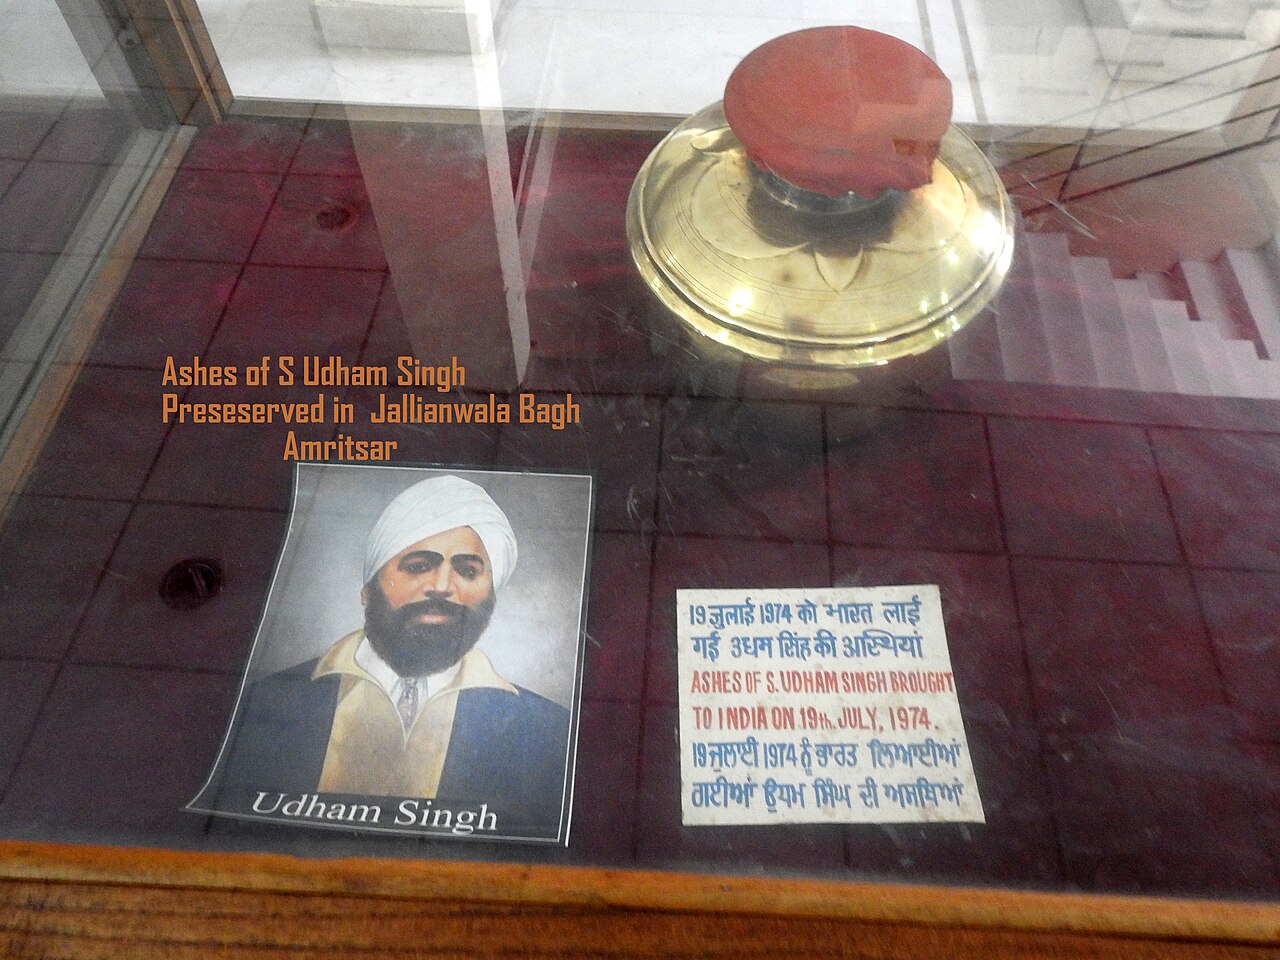 Ashes of S Udham Singh
Preseserved in Jallianwala Bagh
Amritsar
Udham Singh
19 जुलाई 1974 को भारत लाई
गई उधम सिंह की अस्थियां
ASHES OF S. UDHAM SINGH BROUGHT
TO INDIA ON 19th. JULY, 1974.
19 ਜੁਲਾਈ 1974 ਨੂੰ ਭਾਰਤ ਲਿਆਈਆਂ
ਗਈਆਂ ਊਧਮ ਸਿੰਘ ਦੀ ਅਸਥਿਆਂ